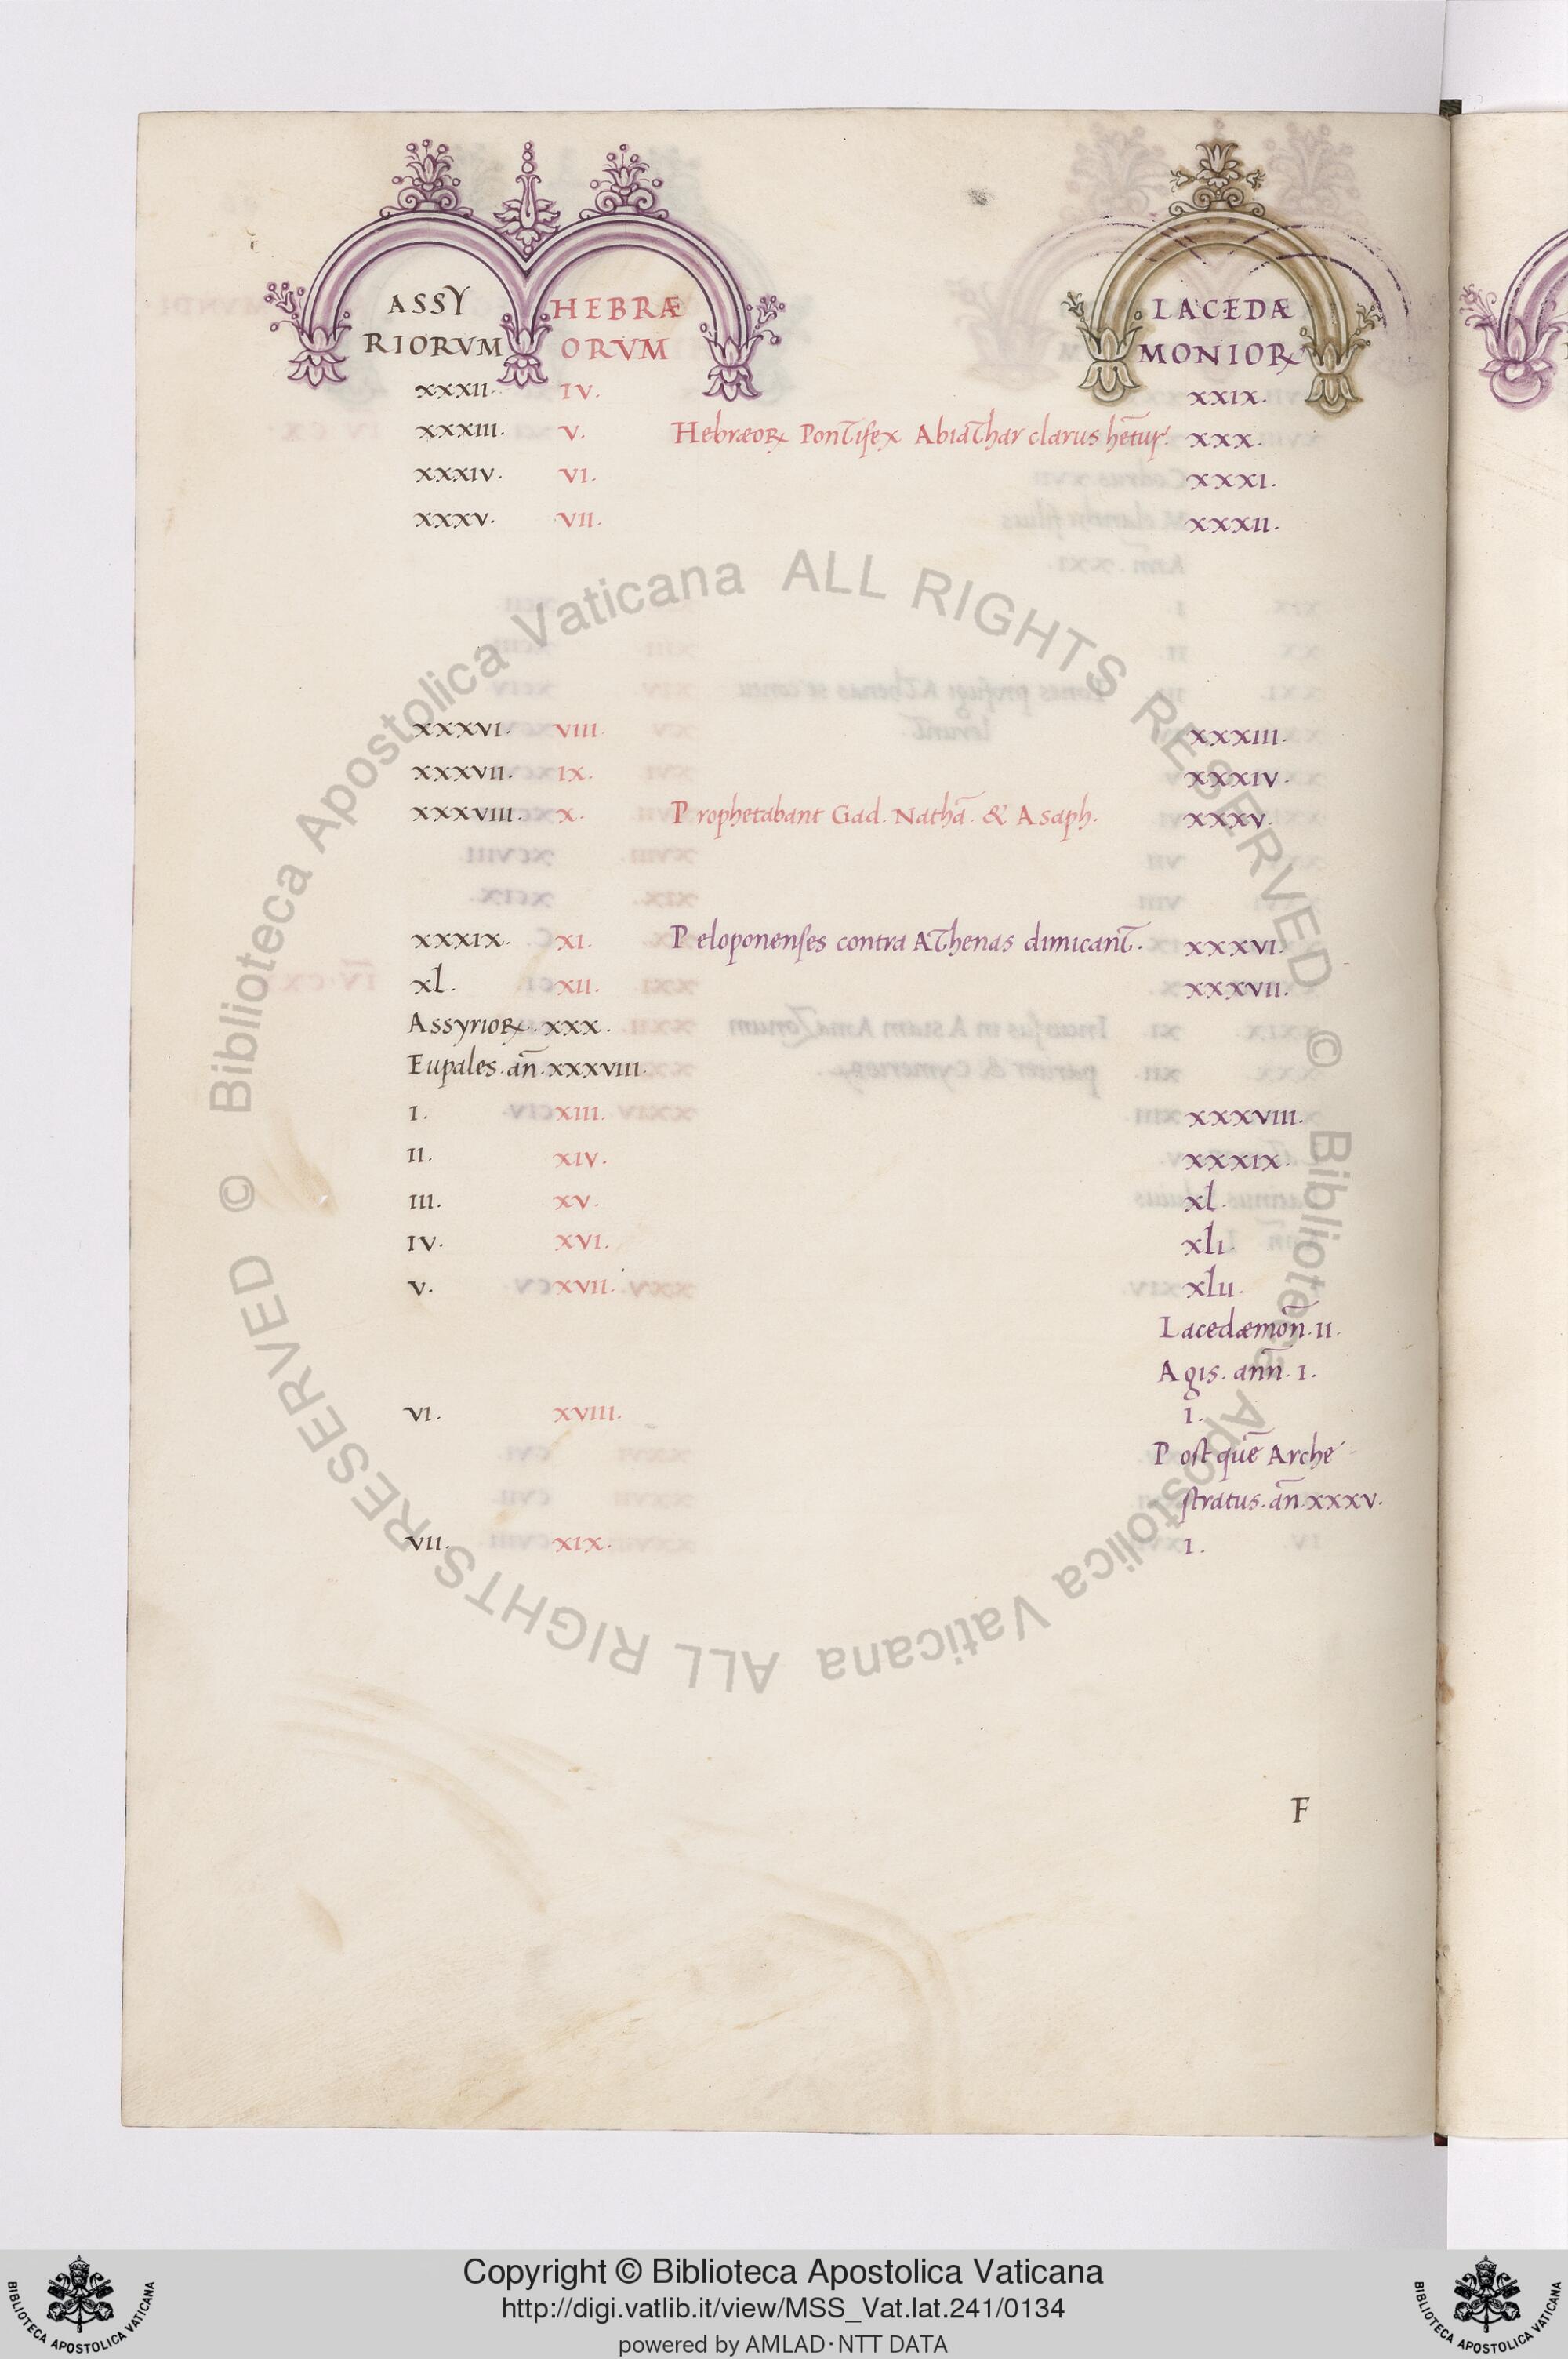 ASSY HEBRÆ LACEDÆ
RIORVM ORVM MONIORꝝ
XXXII. IV. XXIX.
XXXIII. V. Hebræoꝝ Pontifex Abiathar clarus hētur. XXX.
XXXIV. VI. XXXI.
XXXV. VII. XXXII.
XXXVI. VIII. XXXIII.
XXXVII. IX. XXXIV.
XXXVIII. X. Prophetabant Gad. Nathā. & Asaph. XXXV.
XXXIX. XI. Peloponenses contra Athenas dimicant. XXXVI.
xl. XII. XXXVII.
Assyrioꝝ. XXX.
Eupales. an̄. XXXVIII.
I. XIII. XXXVIII.
II. XIV. XXXIX.
III. XV. xl.
IV. XVI. xli.
V. XVII. xlii.
Lacedæmon̄. II.
Agis. ann̄. I.
VI. XVIII. I.
Post quē Arche
stratus. an̄. XXXV.
VII. XIX. I.
F
© Biblioteca Apostolica Vaticana ALL RIGHTS RESERVED © Biblioteca Apostolica Vaticana ALL RIGHTS RESERVED
BIBLIOTECA APOSTOLICA VATICANA
Copyright © Biblioteca Apostolica Vaticana
http://digi.vatlib.it/view/MSS_Vat.lat.241/0134
powered by AMLAD·NTT DATA
BIBLIOTECA APOSTOLICA VATICANA